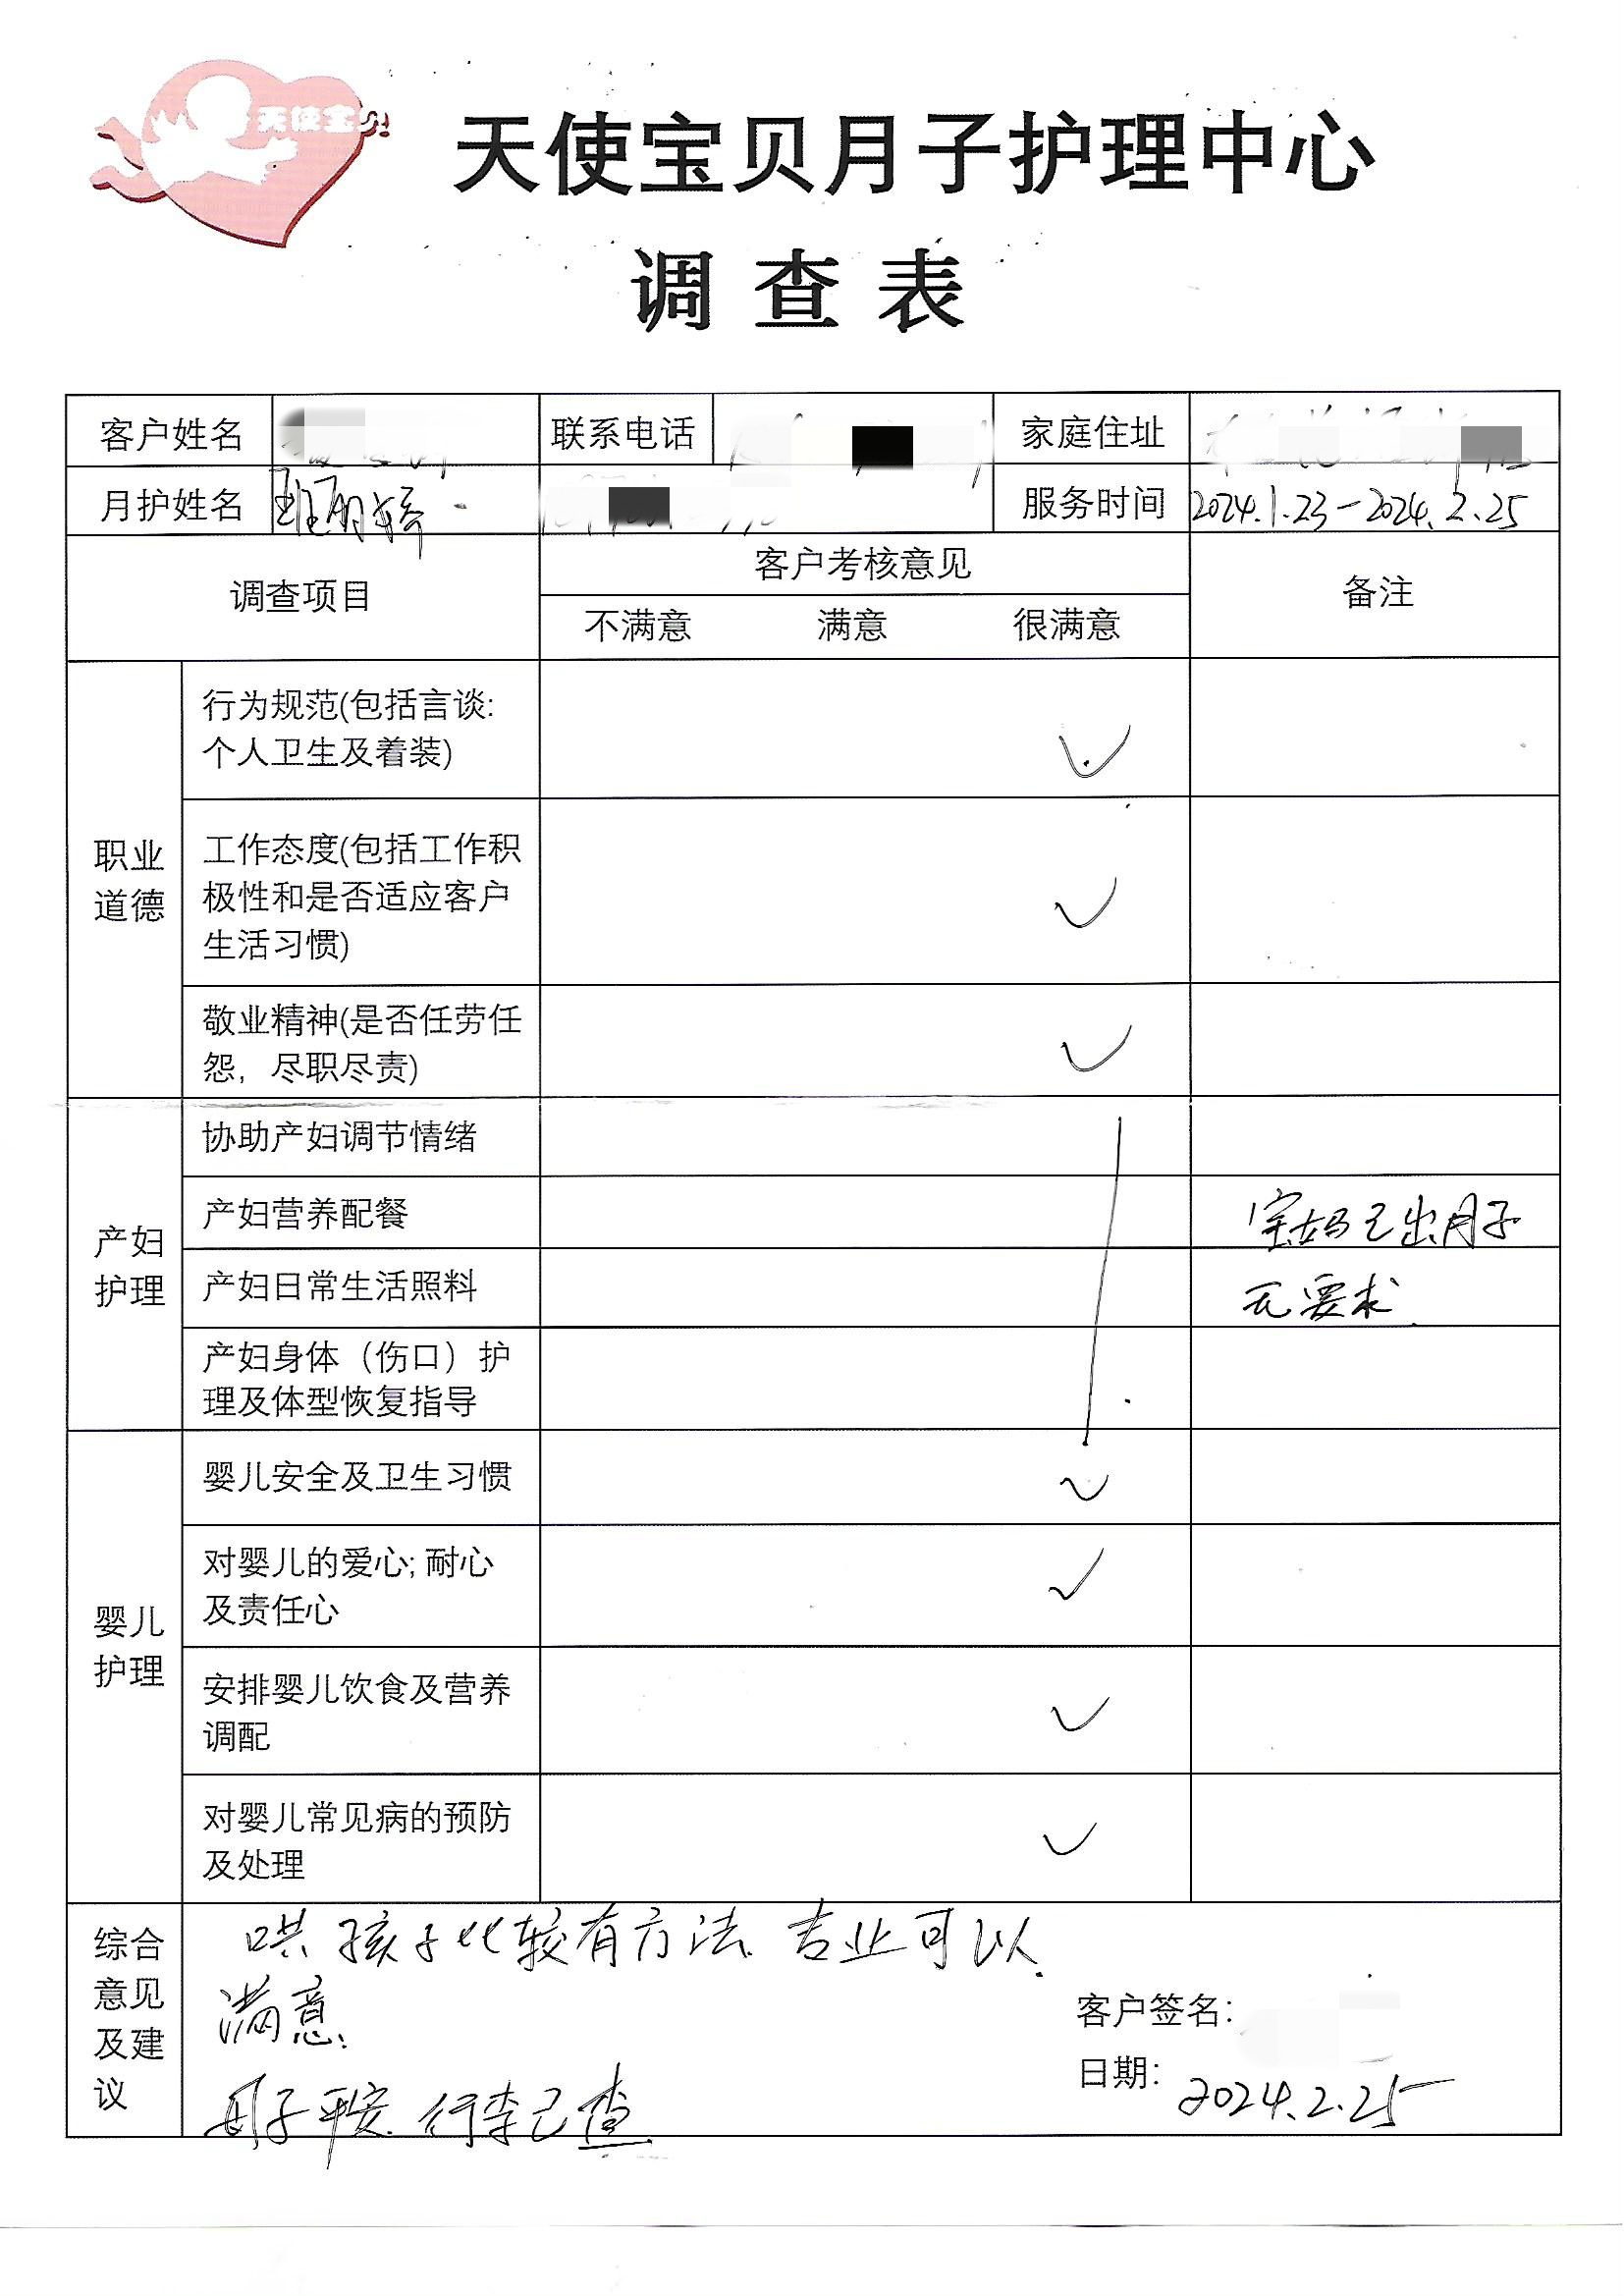 天使宝贝
天使宝贝月子护理中心
调查表
客户姓名 联系电话 家庭住址
月护姓名 服务时间 2024.1.23-2024.2.25
调查项目 客户考核意见 备注
不满意 满意 很满意
职业
道德
行为规范(包括言谈:
个人卫生及着装)
工作态度(包括工作积
极性和是否适应客户
生活习惯)
敬业精神(是否任劳任
怨，尽职尽责)
产妇
护理
协助产妇调节情绪
产妇营养配餐
产妇日常生活照料
产妇身体（伤口）护
理及体型恢复指导
宝妈已出月子
无要求.
婴儿
护理
婴儿安全及卫生习惯
对婴儿的爱心; 耐心
及责任心
安排婴儿饮食及营养
调配
对婴儿常见病的预防
及处理
综合
意见
及建
议
哄孩子比较有方法. 专业可以.
满意.
母子平安. 行李已查
客户签名:
日期: 2024.2.25